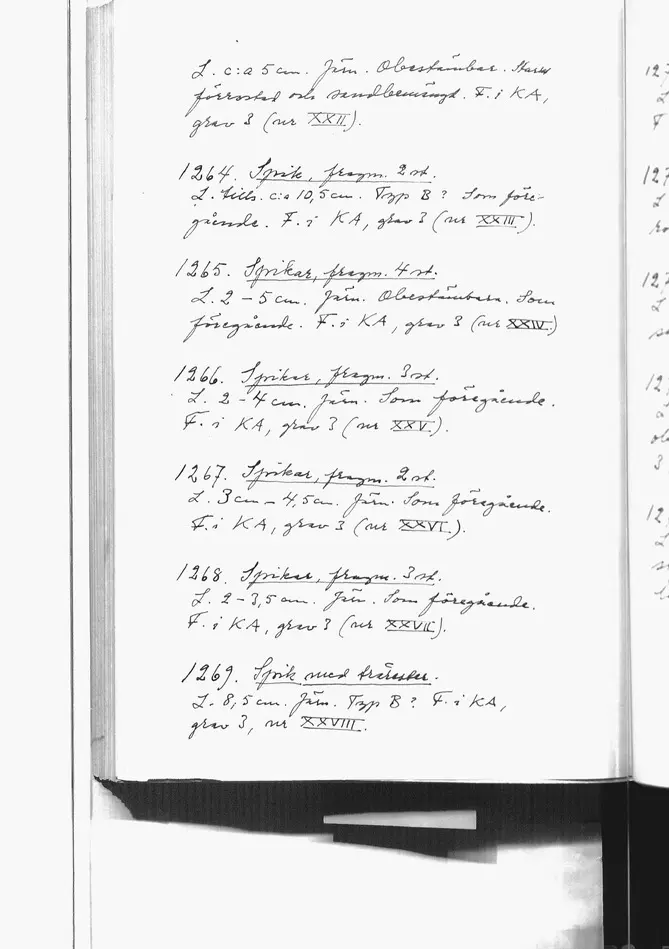 L. c:a 5 cm. Järn. Obestämbar. Starkt
förrostad och sandbemängd. F. i KA,
grav 3 (nr XXII).
1264. Spik, fragm. 2 st.
L. tills. c:a 10,5 cm. Typ B? Som före-
gående. F. i KA, grav 3 (nr XXIII).
1265. Spikar, fragm. 4 st.
L. 2 – 5 cm. Järn. Obestämbara. Som
föregående. F. i KA, grav 3 (nr XXIV)
1266. Spikar, fragm. 3 st.
L. 2 – 4 cm. Järn. Som föregående.
F. i KA, grav 3 (nr XXV).
1267. Spikar, fragm. 2 st.
L. 3 cm – 4,5 cm. Järn. Som föregående.
F. i KA, grav 3 (nr XXVI).
1268. Spikar, fragm. 3 st.
L. 2 – 3,5 cm. Järn. Som föregående.
F. i KA, grav 3 (nr XXVII).
1269. Spik med trärester.
L. 8,5 cm. Järn. Typ B? F. i KA,
grav 3, nr XXVIII.